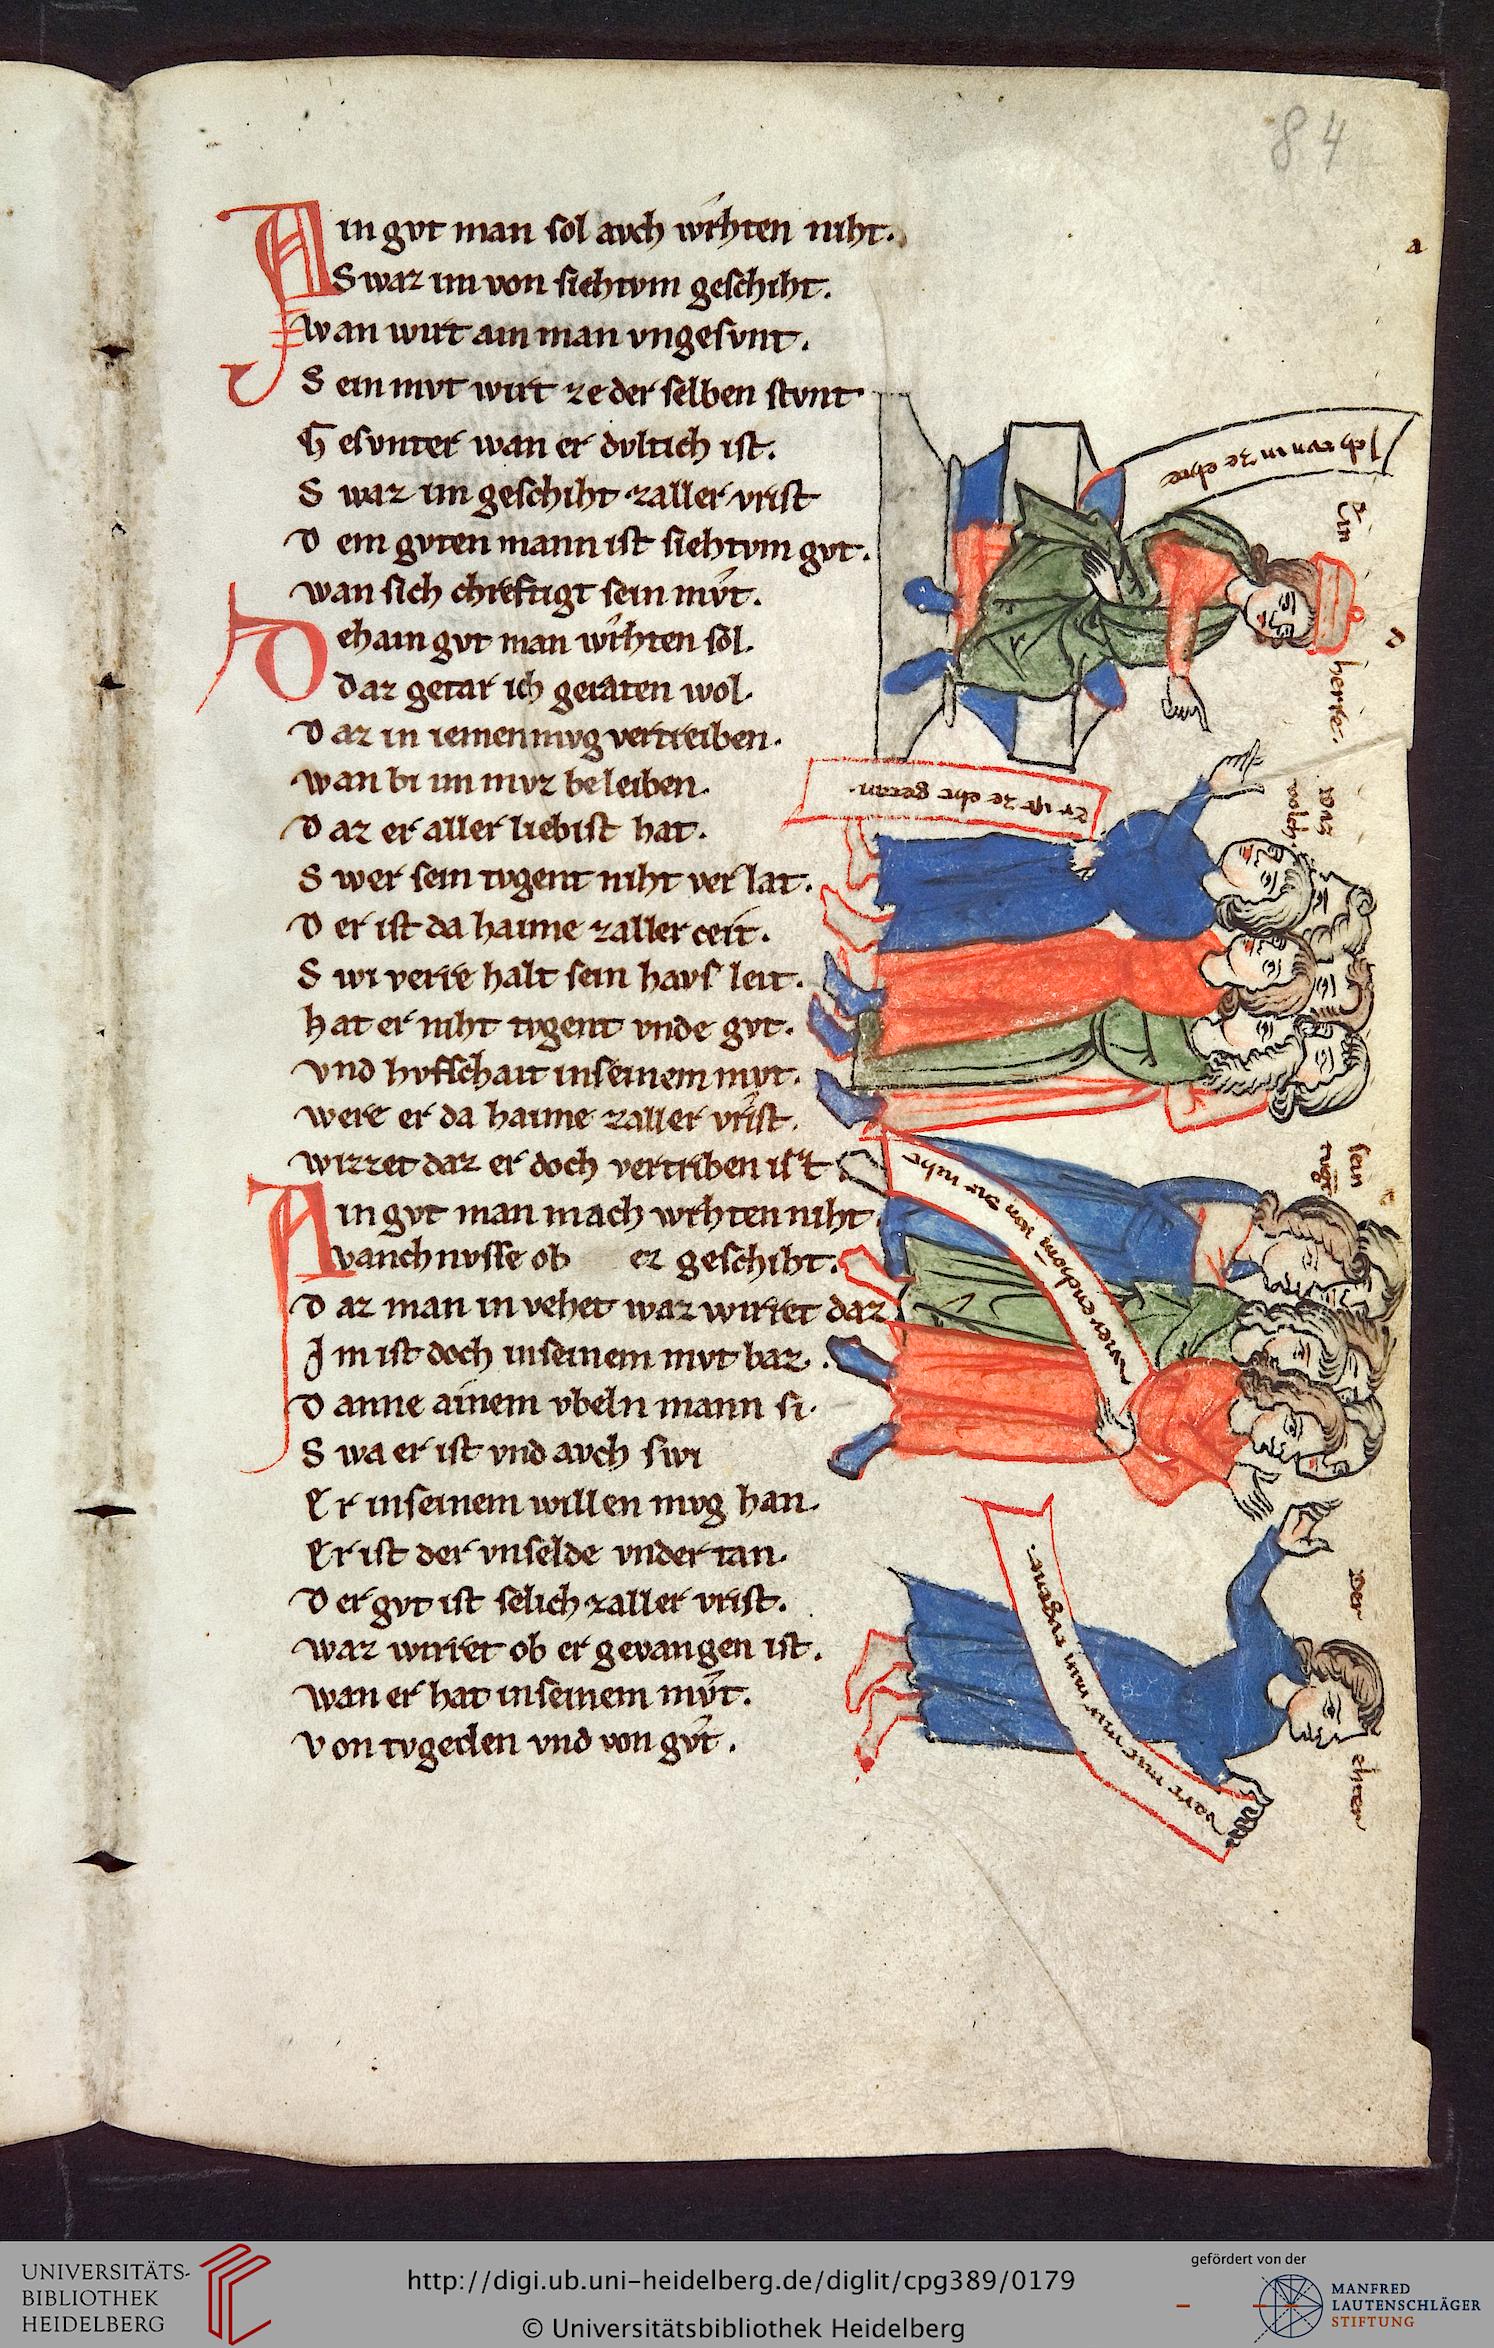 84
Ain gvt man sol avch wrhten niht.
Swaz im von siehtvm geschiht.
wan wirt ain man vngesvnt.
Sein mvt wirt ze der selben stvnt
Gesvnter wan er dvltich ist.
Swaz im geschiht zaller vrist
Dem gvten mann ist siehtvm gvt.
wan sich chreftigt sein mvt.
Dehain gvt man wrhten sol.
Daz getar ich geraten wol.
Daz in iemen mvg vertreiben.
wan bi im mvz beleiben.
Daz er aller liebist hat.
Swer sein tvgent niht ver lat.
Der ist da haime zaller ceit.
Swi verre halt sein havs leit.
hat er niht tvgent vnde gvt.
vnd hvfschait in seinem mvt.
were er da haime zaller vrist.
wizzet daz er doch vertriben ist
Ain gvt man mach wrhten niht
vanchnvsse ob ez geschiht.
Daz man in vehet waz wirret daz
Im ist doch in seinem mvt baz.
Danne ainem vbeln mann si.
Swa er ist vnd avch swi
Er in seinem willen mvg han.
Er ist der vnselde vnder tan.
Der gvt ist selich zaller vrist.
waz wirret ob er gevangen ist.
wan er hat in seinem mvt.
Von tvgenden vnd von gvt.
a
Ich tvn in ze ehte
Ein
herre.
Er ist ze eht getan.
daz
volch.
sein
wier enchomen von dir niht
Der
ehter
vart mit mir min tvgent.
UNIVERSITÄTS-
BIBLIOTHEK
HEIDELBERG
http://digi.ub.uni-heidelberg.de/diglit/cpg389/0179
© Universitätsbibliothek Heidelberg
gefördert von der
MANFRED
LAUTENSCHLÄGER
STIFTUNG